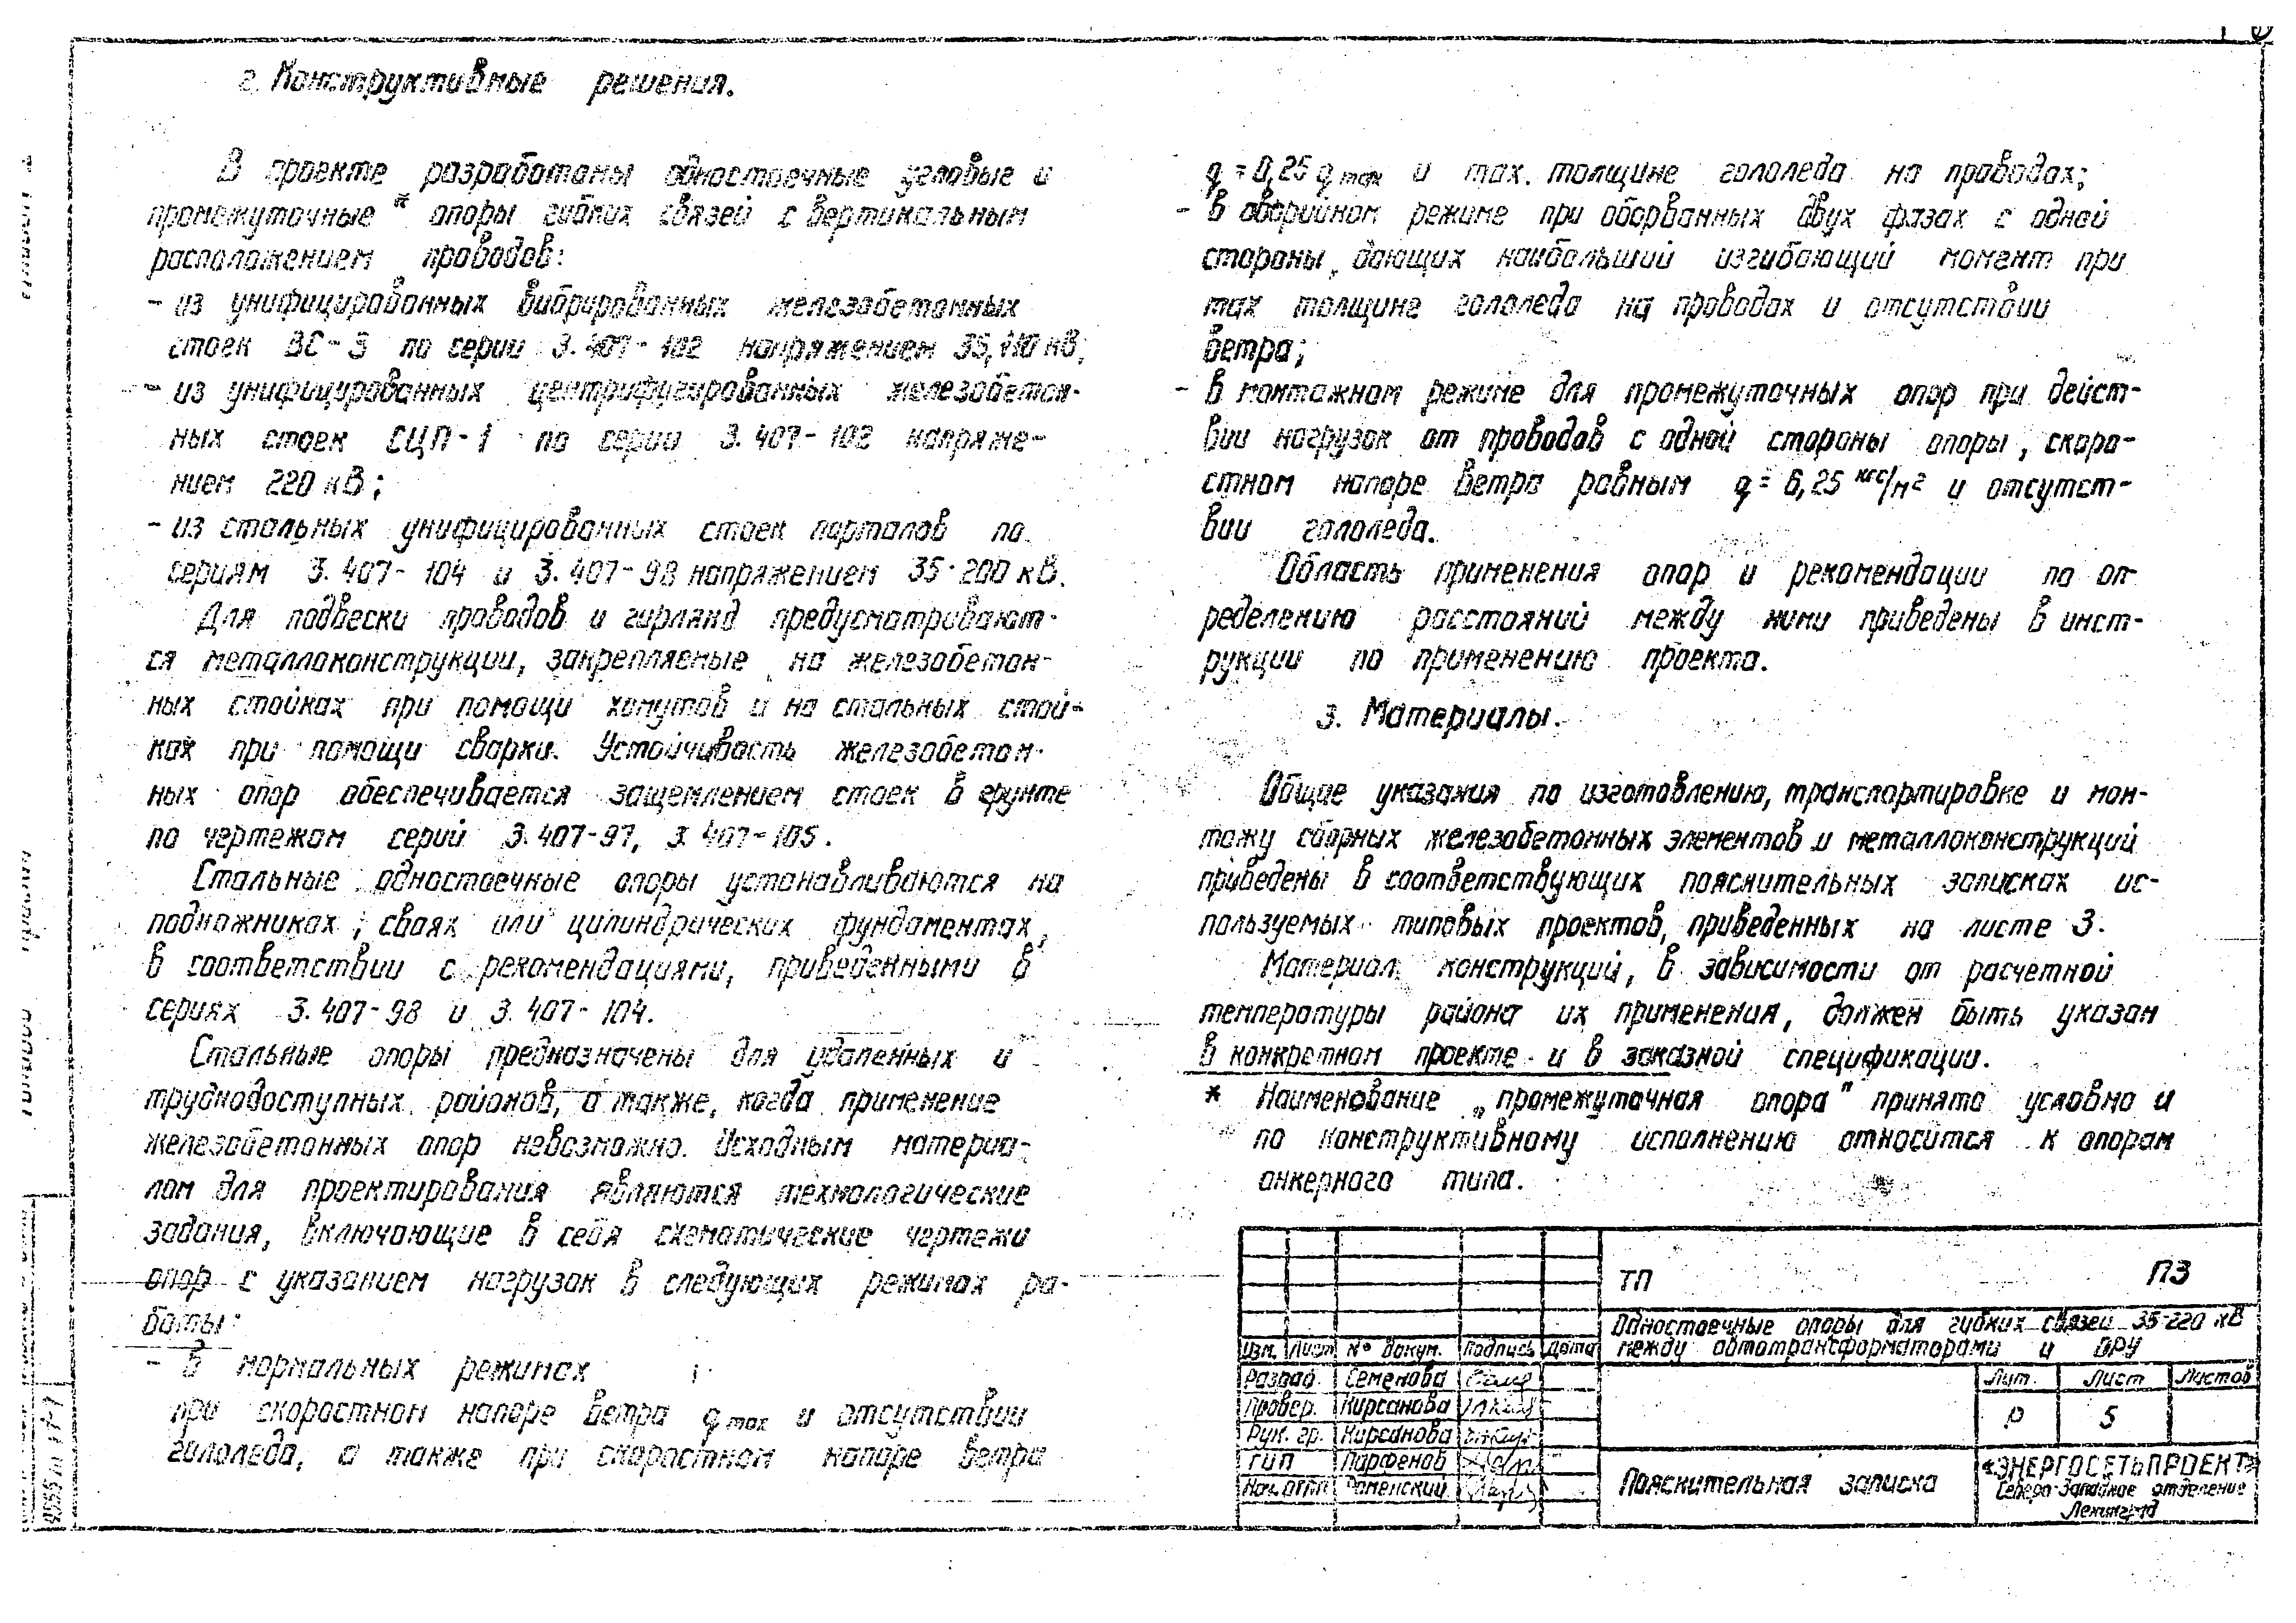 г. Конструктивные решения.
В проекте разработаны одностоечные угловые и
промежуточные* опоры гибких связей с вертикальным
расположением проводов:
- из унифицированных вибрированных железобетонных
стоек ВС-3 по серии 3.407-102 напряжением 35,110 кВ;
- из унифицированных центрифугированных железобетон-
ных стоек СЦП-1 по серии 3.407-102 напряже-
нием 220 кВ;
- из стальных унифицированных стоек порталов по
сериям 3.407-104 и 3.407-98 напряжением 35-200 кВ.
Для подвески проводов и гирлянд предусматривают-
ся металлоконструкции, закрепляемые на железобетон-
ных стойках при помощи хомутов и на стальных стой-
ках при помощи сварки. Устойчивость железобетон-
ных опор обеспечивается защемлением стоек в грунте
по чертежам серий 3.407-97, 3.407-105.
Стальные одностоечные опоры устанавливаются на
подножниках, сваях или цилиндрических фундаментах,
в соответствии с рекомендациями, приведенными в
сериях 3.407-98 и 3.407-104.
Стальные опоры предназначены для удаленных и
труднодоступных районов, а также, когда применение
железобетонных опор невозможно. Исходным материа-
лом для проектирования являются технологические
задания, включающие в себя схематические чертежи
опор с указанием нагрузок в следующих режимах ра-
боты:
- в нормальных режимах
при скоростном напоре ветра q max и отсутствии
гололеда, а также при скоростном напоре ветра
q = 0,25 q max и max. толщине гололеда на проводах;
- в аварийном режиме при оборванных двух фазах с одной
стороны, дающих наибольший изгибающий момент при
max толщине гололеда на проводах и отсутствии
ветра;
- в монтажном режиме для промежуточных опор при дейст-
вии нагрузок от проводов с одной стороны опоры, скоро-
стном напоре ветра равным q = 6,25 кгс/м² и отсутст-
вии гололеда.
Область применения опор и рекомендации по оп-
ределению расстояний между ними приведены в инст-
рукции по применению проекта.
3. Материалы.
Общие указания по изготовлению, транспортировке и мон-
тажу сборных железобетонных элементов и металлоконструкций
приведены в соответствующих пояснительных записках ис-
пользуемых типовых проектов, приведенных на листе 3.
Материал конструкций, в зависимости от расчетной
температуры района их применения, должен быть указан
в конкретном проекте и в заказной спецификации.
* Наименование „промежуточная опора" принято условно и
по конструктивному исполнению относится к опорам
анкерного типа.
ТП ПЗ
Одностоечные опоры для гибких связей 35-220 кВ
между автотрансформаторами и ОРУ
Изм. Лист № докум. Подпись Дата
Разраб. Семенова
Провер. Кирсанова
Рук. гр. Кирсанова
ГИП Парфенов
Нач. ОТП Роменский
Лит. Лист Листов
Р 5
Пояснительная записка
«ЭНЕРГОСЕТЬПРОЕКТ»
Северо-Западное отделение
Ленинград